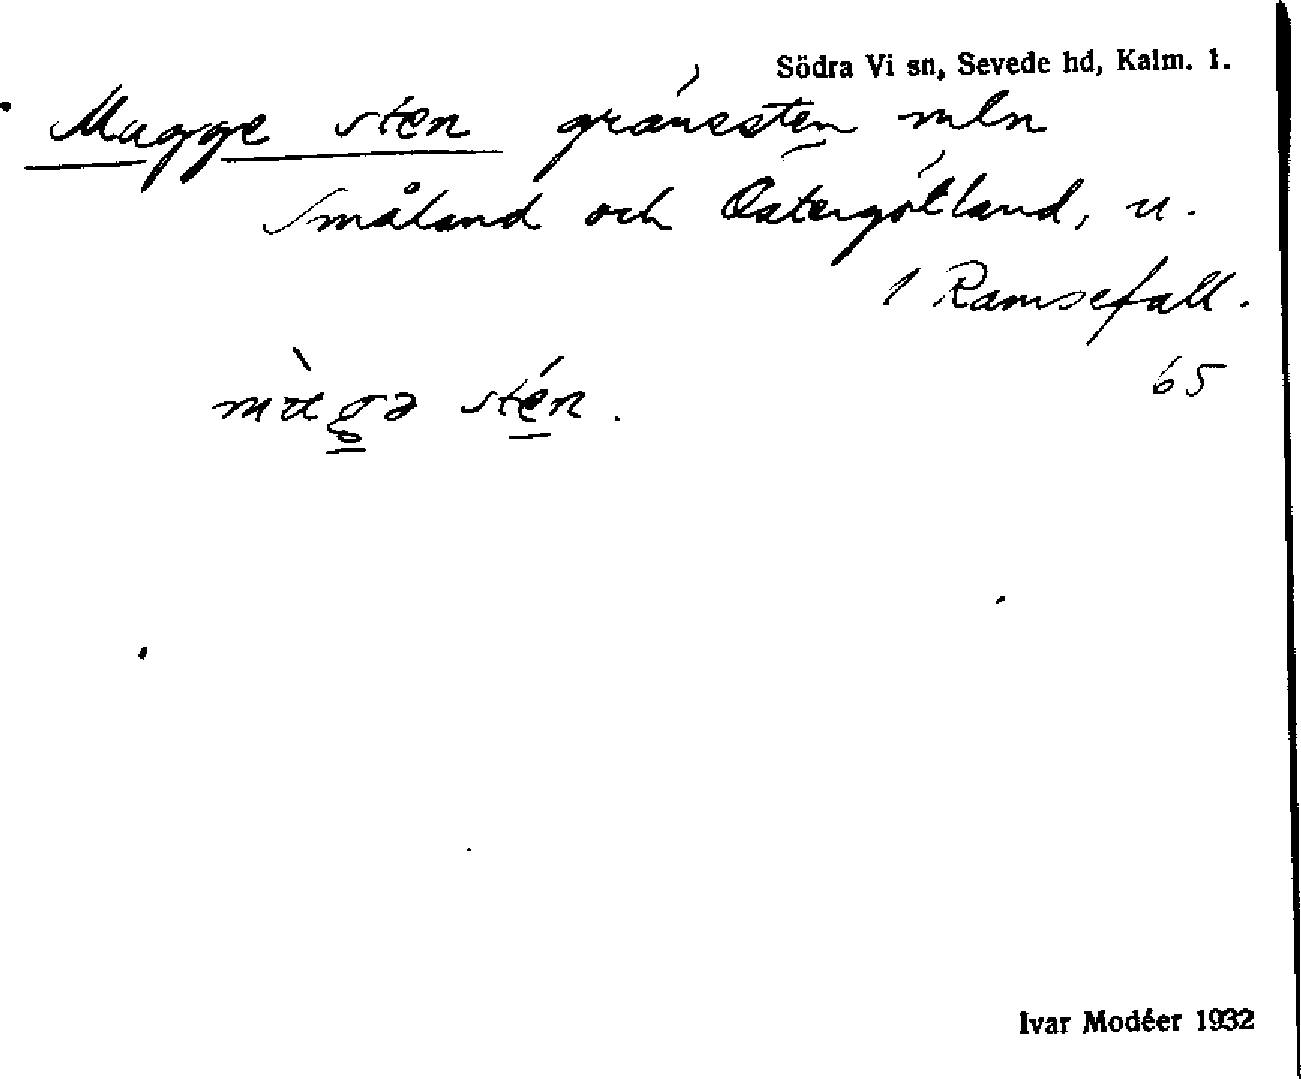 Södra Vi sn, Sevede hd, Kalm. l.
Mugge sten gränssten mln
Småland och Östergötland, u.
1 Ramsefall.
65
stén.
Ivar Modéer 1932